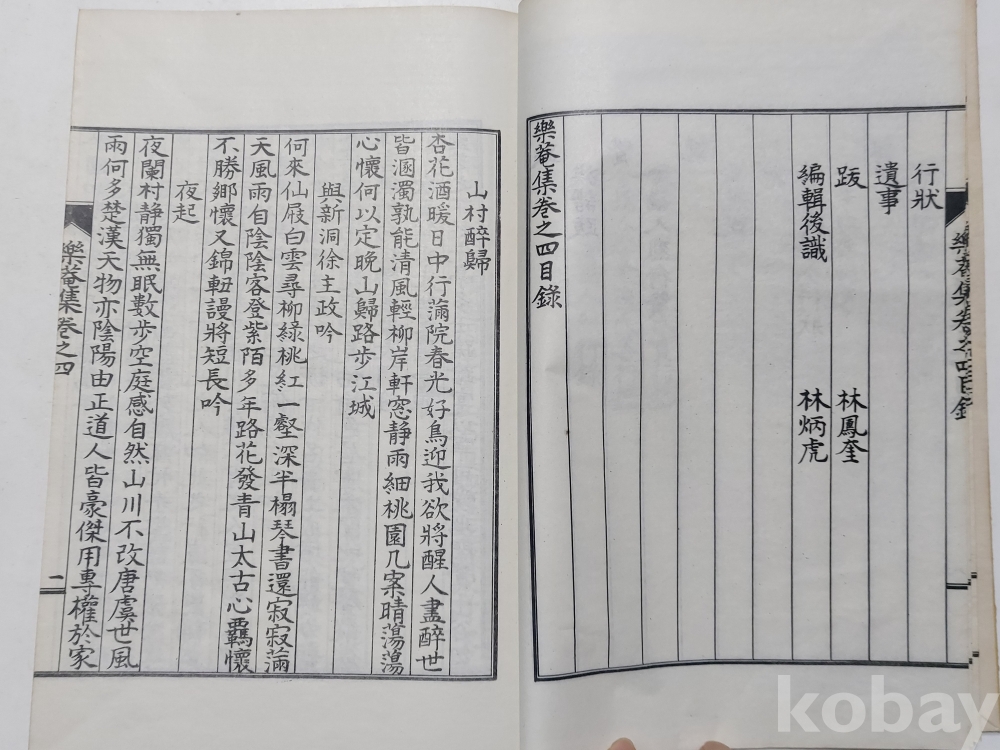 行狀
遺事
跋 林鳳奎
編輯後識 林炳虎
樂菴集卷之四目錄
樂菴集卷之四目錄
山村醉歸
杏花酒暖日中行滿院春光好鳥迎我欲將醒人盡醉世
皆溷濁孰能清風輕柳岸軒窓静雨細桃園几案晴蕩蕩
心懷何以定晩山歸路步江城
與新洞徐主政吟
何來仙屐白雲尋柳綠桃紅一壑深半榻琴書還寂寂滿
天風雨自陰陰客登紫陌多年路花發青山太古心羈懷
不勝鄉懷又錦軸謾將短長吟
夜起
夜闌村静獨無眠數步空庭感自然山川不改唐虞世風
雨何多楚漢天物亦陰陽由正道人皆豪傑用專權於家
樂菴集卷之四
一
kobay